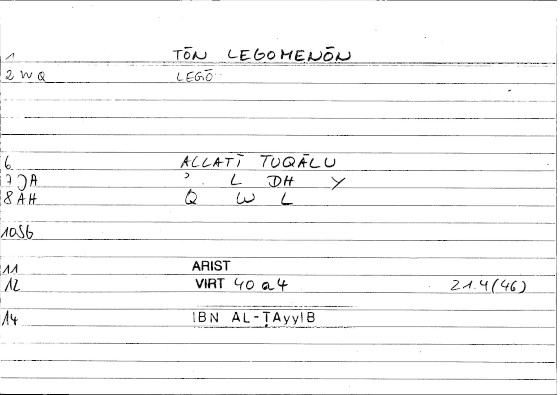 1 TŌN LEGOMENŌN
2 WQ LEGŌ
6 ALLATĪ TUQĀLU
7 JA ʾ. L DH Y
8 AH Q W L
10 SG
11 ARIST
12 VIRT 40 a 4 21.4(46)
14 IBN AL-ṬAyyIB